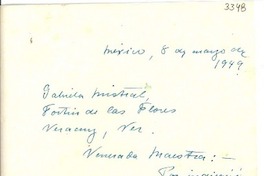 3398
México, 8 de mayo de
1949
Gabriela Mistral,
Fortín de las Flores
Veracruz, Ver.
Venerada Maestra: —
Por